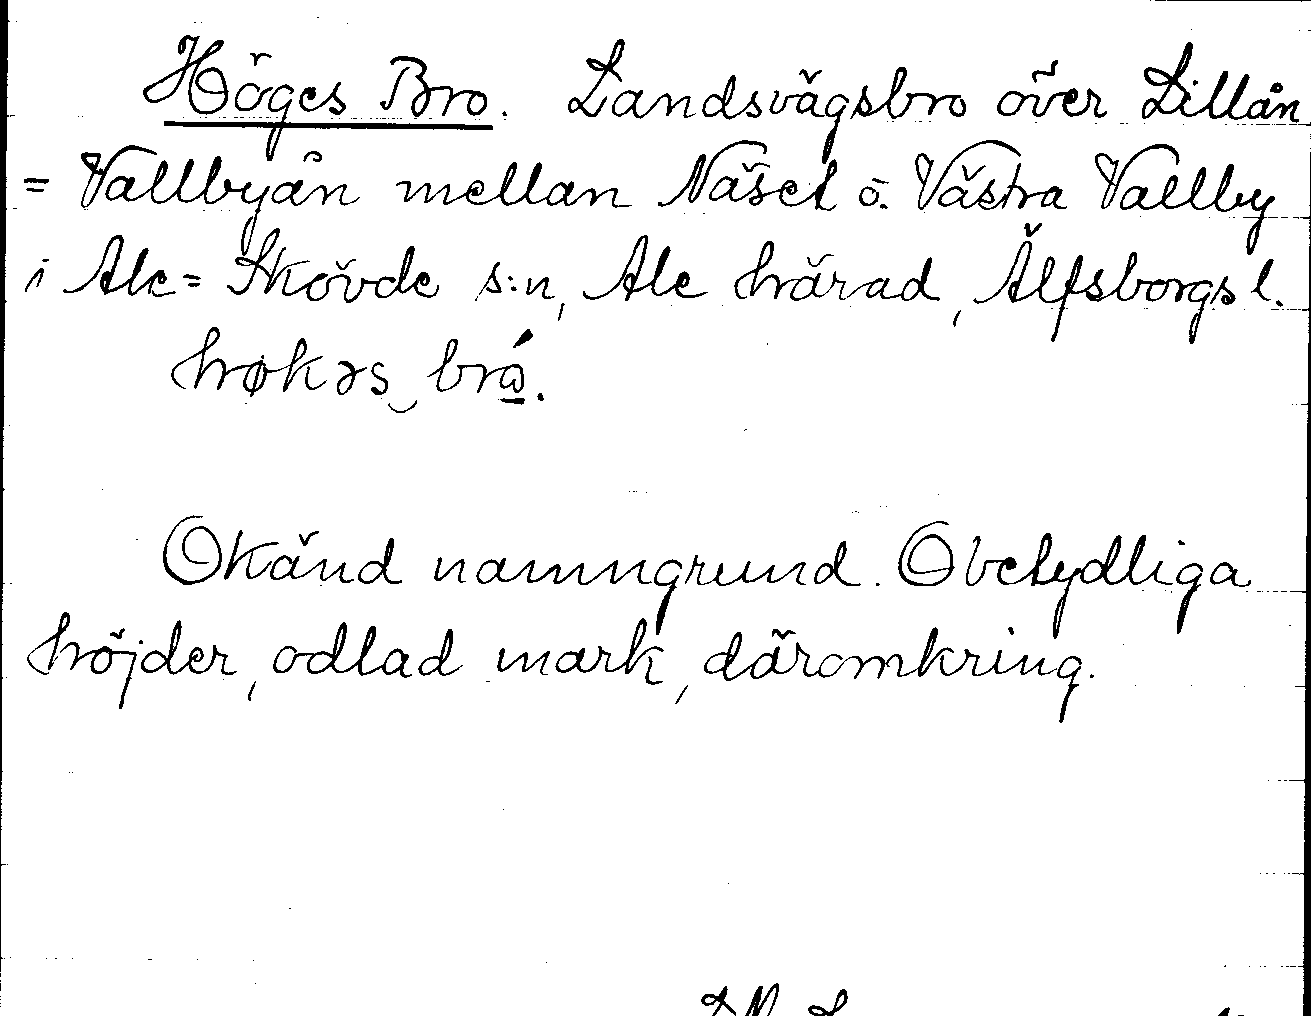 Höges Bro. Landsvägsbro över Lillån
= Vallbyån mellan Näset o. Västra Vallby
i Ale=Skövde s:n, Ale härad, Älfsborgs l.
høkəs‿brǻ.
Okänd namngrund. Obetydliga
höjder, odlad mark, däromkring.